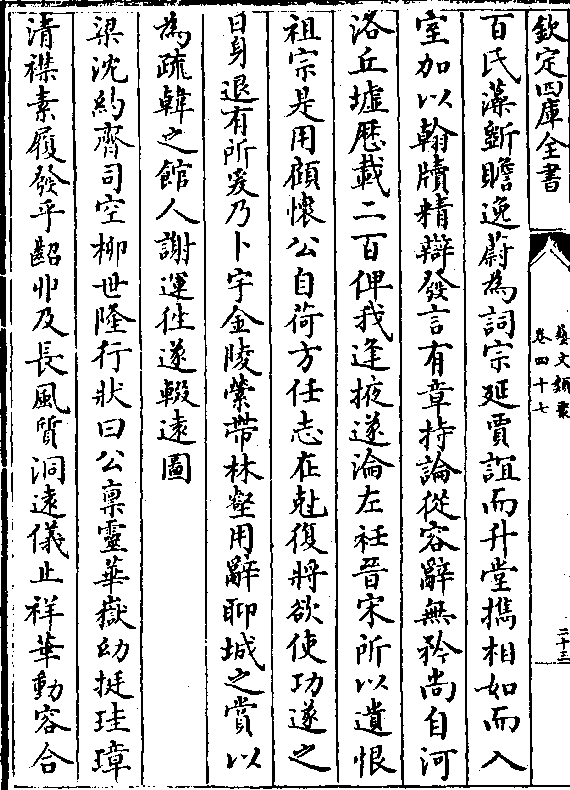 欽定四庫全書
藝文類聚
卷四十七
三十三
百氏藻斲贍逸蔚為詞宗延賈誼而升堂攜相如而入
室加以翰牘精辯發言有章持論從容辭無矜尚自河
洛丘墟歷載二百俾我逢掖遂淪左衽晉宋所以遺恨
祖宗是用顧懷公自荷方任志在尅復將欲使功遂之
日身退有所爰乃卜宇金陵縈帶林壑用辭聊城之賞以
為疏韓之館人謝運徃遂輟遠圖
梁沈約齊司空柳世隆行狀曰公禀靈華嶽幼挺珪璋
清襟素履發乎齠丱及長風質洞遠儀止祥華動容合